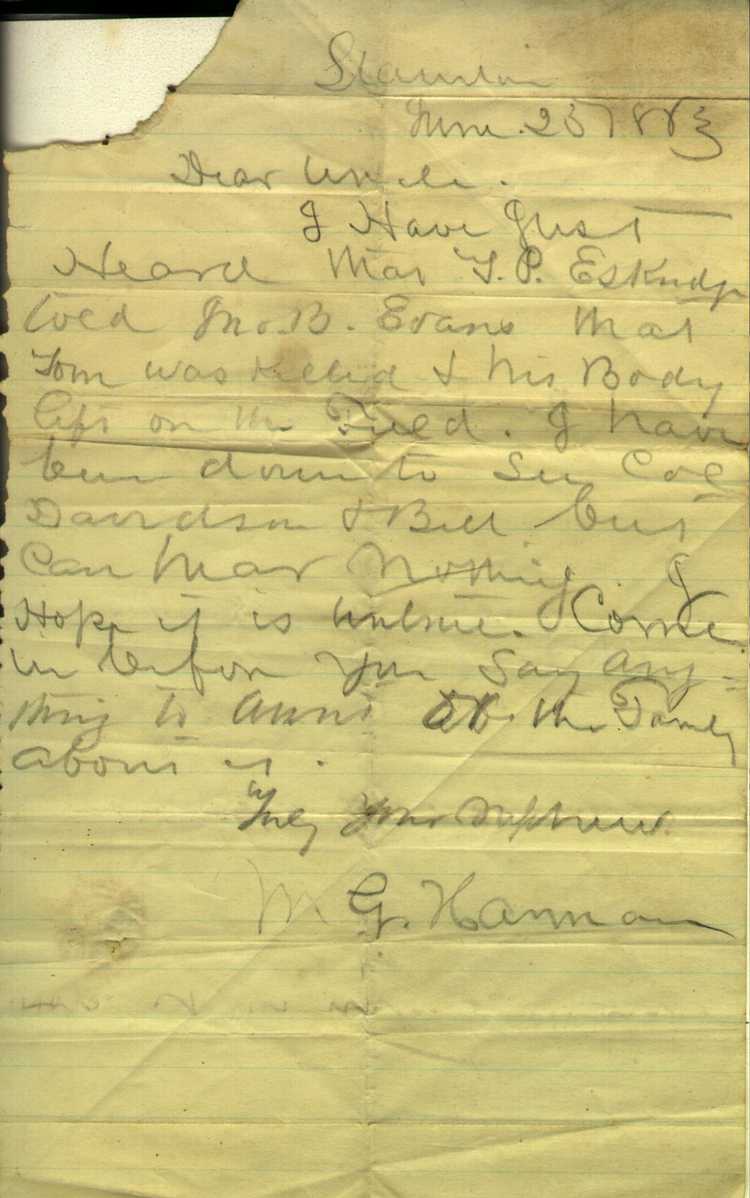 Staunton
June. 25 1863
Dear Uncle.
I Have Just
Heard that T. P. Eskridge
told Jno. B. Evans that
Tom was killed & his Body
left on the Field. I have
been down to See Col
Davidson & Bell but
Can hear Nothing. I
Hope it is untrue. Come
in before you Say Any-
thing to Aunt or the Family
about it.
Truly Your Nephew.
M G. Harman